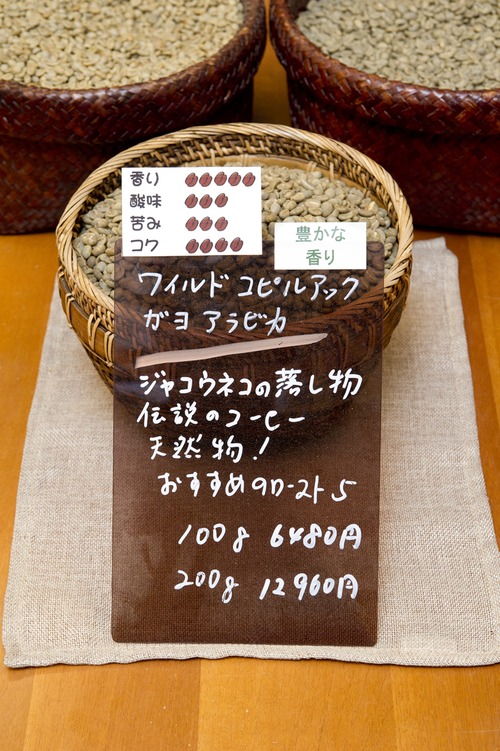 香り
酸味
苦み
コク
豊かな
香り
ワイルド コピルアック
ガヨ アラビカ
ジャコウネコの落し物
伝説のコーヒー
天然物!
おすすめのロースト5
100g 6480円
200g 12960円